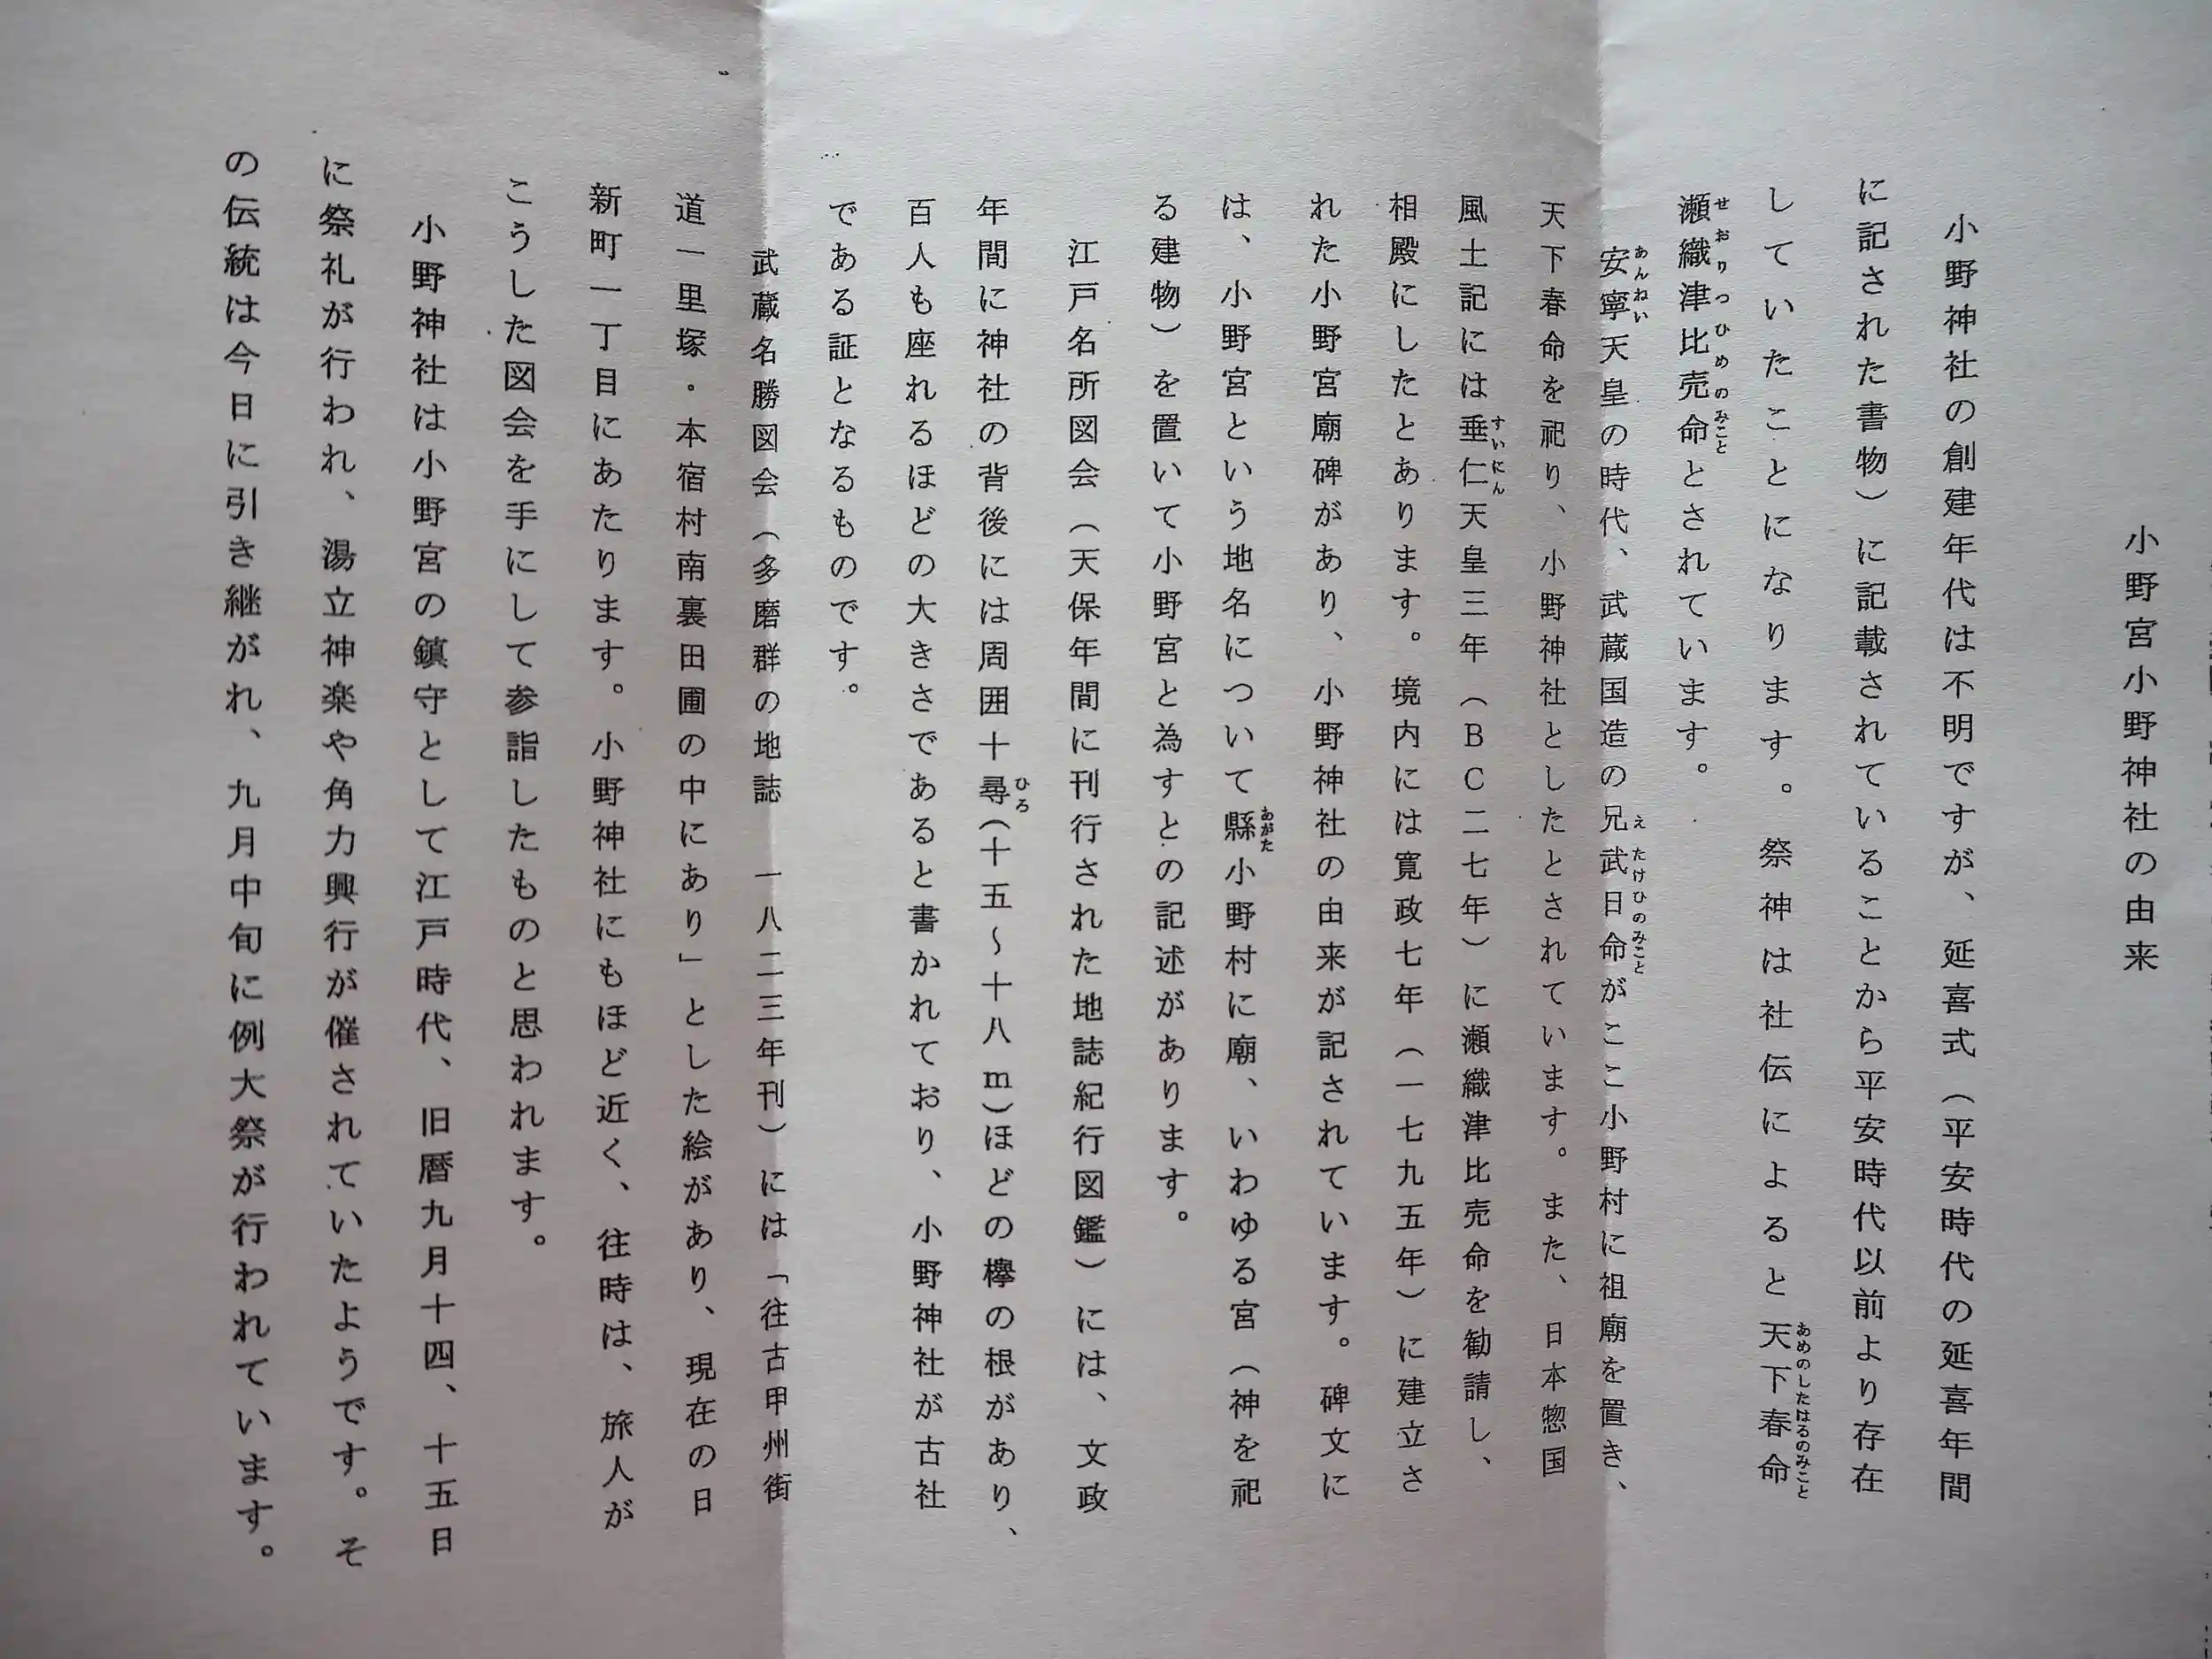 小野宮小野神社の由来
小野神社の創建年代は不明ですが、延喜式（平安時代の延喜年間
に記された書物）に記載されていることから平安時代以前より存在
していたことになります。祭神は社伝によると天下春命
瀬織津比売命とされています。
安寧天皇の時代、武蔵国造の兄武日命がここ小野村に祖廟を置き、
天下春命を祀り、小野神社としたとされています。また、日本惣国
風土記には垂仁天皇三年（ＢＣ二七年）に瀬織津比売命を勧請し、
相殿にしたとあります。境内には寛政七年（一七九五年）に建立さ
れた小野宮廟碑があり、小野神社の由来が記されています。碑文に
は、小野宮という地名について縣小野村に廟、いわゆる宮（神を祀
る建物）を置いて小野宮と為すとの記述があります。
江戸名所図会（天保年間に刊行された地誌紀行図鑑）には、文政
年間に神社の背後には周囲十尋（十五～十八ｍ）ほどの欅の根があり、
百人も座れるほどの大きさであると書かれており、小野神社が古社
である証となるものです。
武蔵名勝図会（多磨群の地誌　一八二三年刊）には「往古甲州街
道一里塚・本宿村南裏田圃の中にあり」とした絵があり、現在の日
新町一丁目にあたります。小野神社にもほど近く、往時は、旅人が
こうした図会を手にして参詣したものと思われます。
小野神社は小野宮の鎮守として江戸時代、旧暦九月十四、十五日
に祭礼が行われ、湯立神楽や角力興行が催されていたようです。そ
の伝統は今日に引き継がれ、九月中旬に例大祭が行われています。